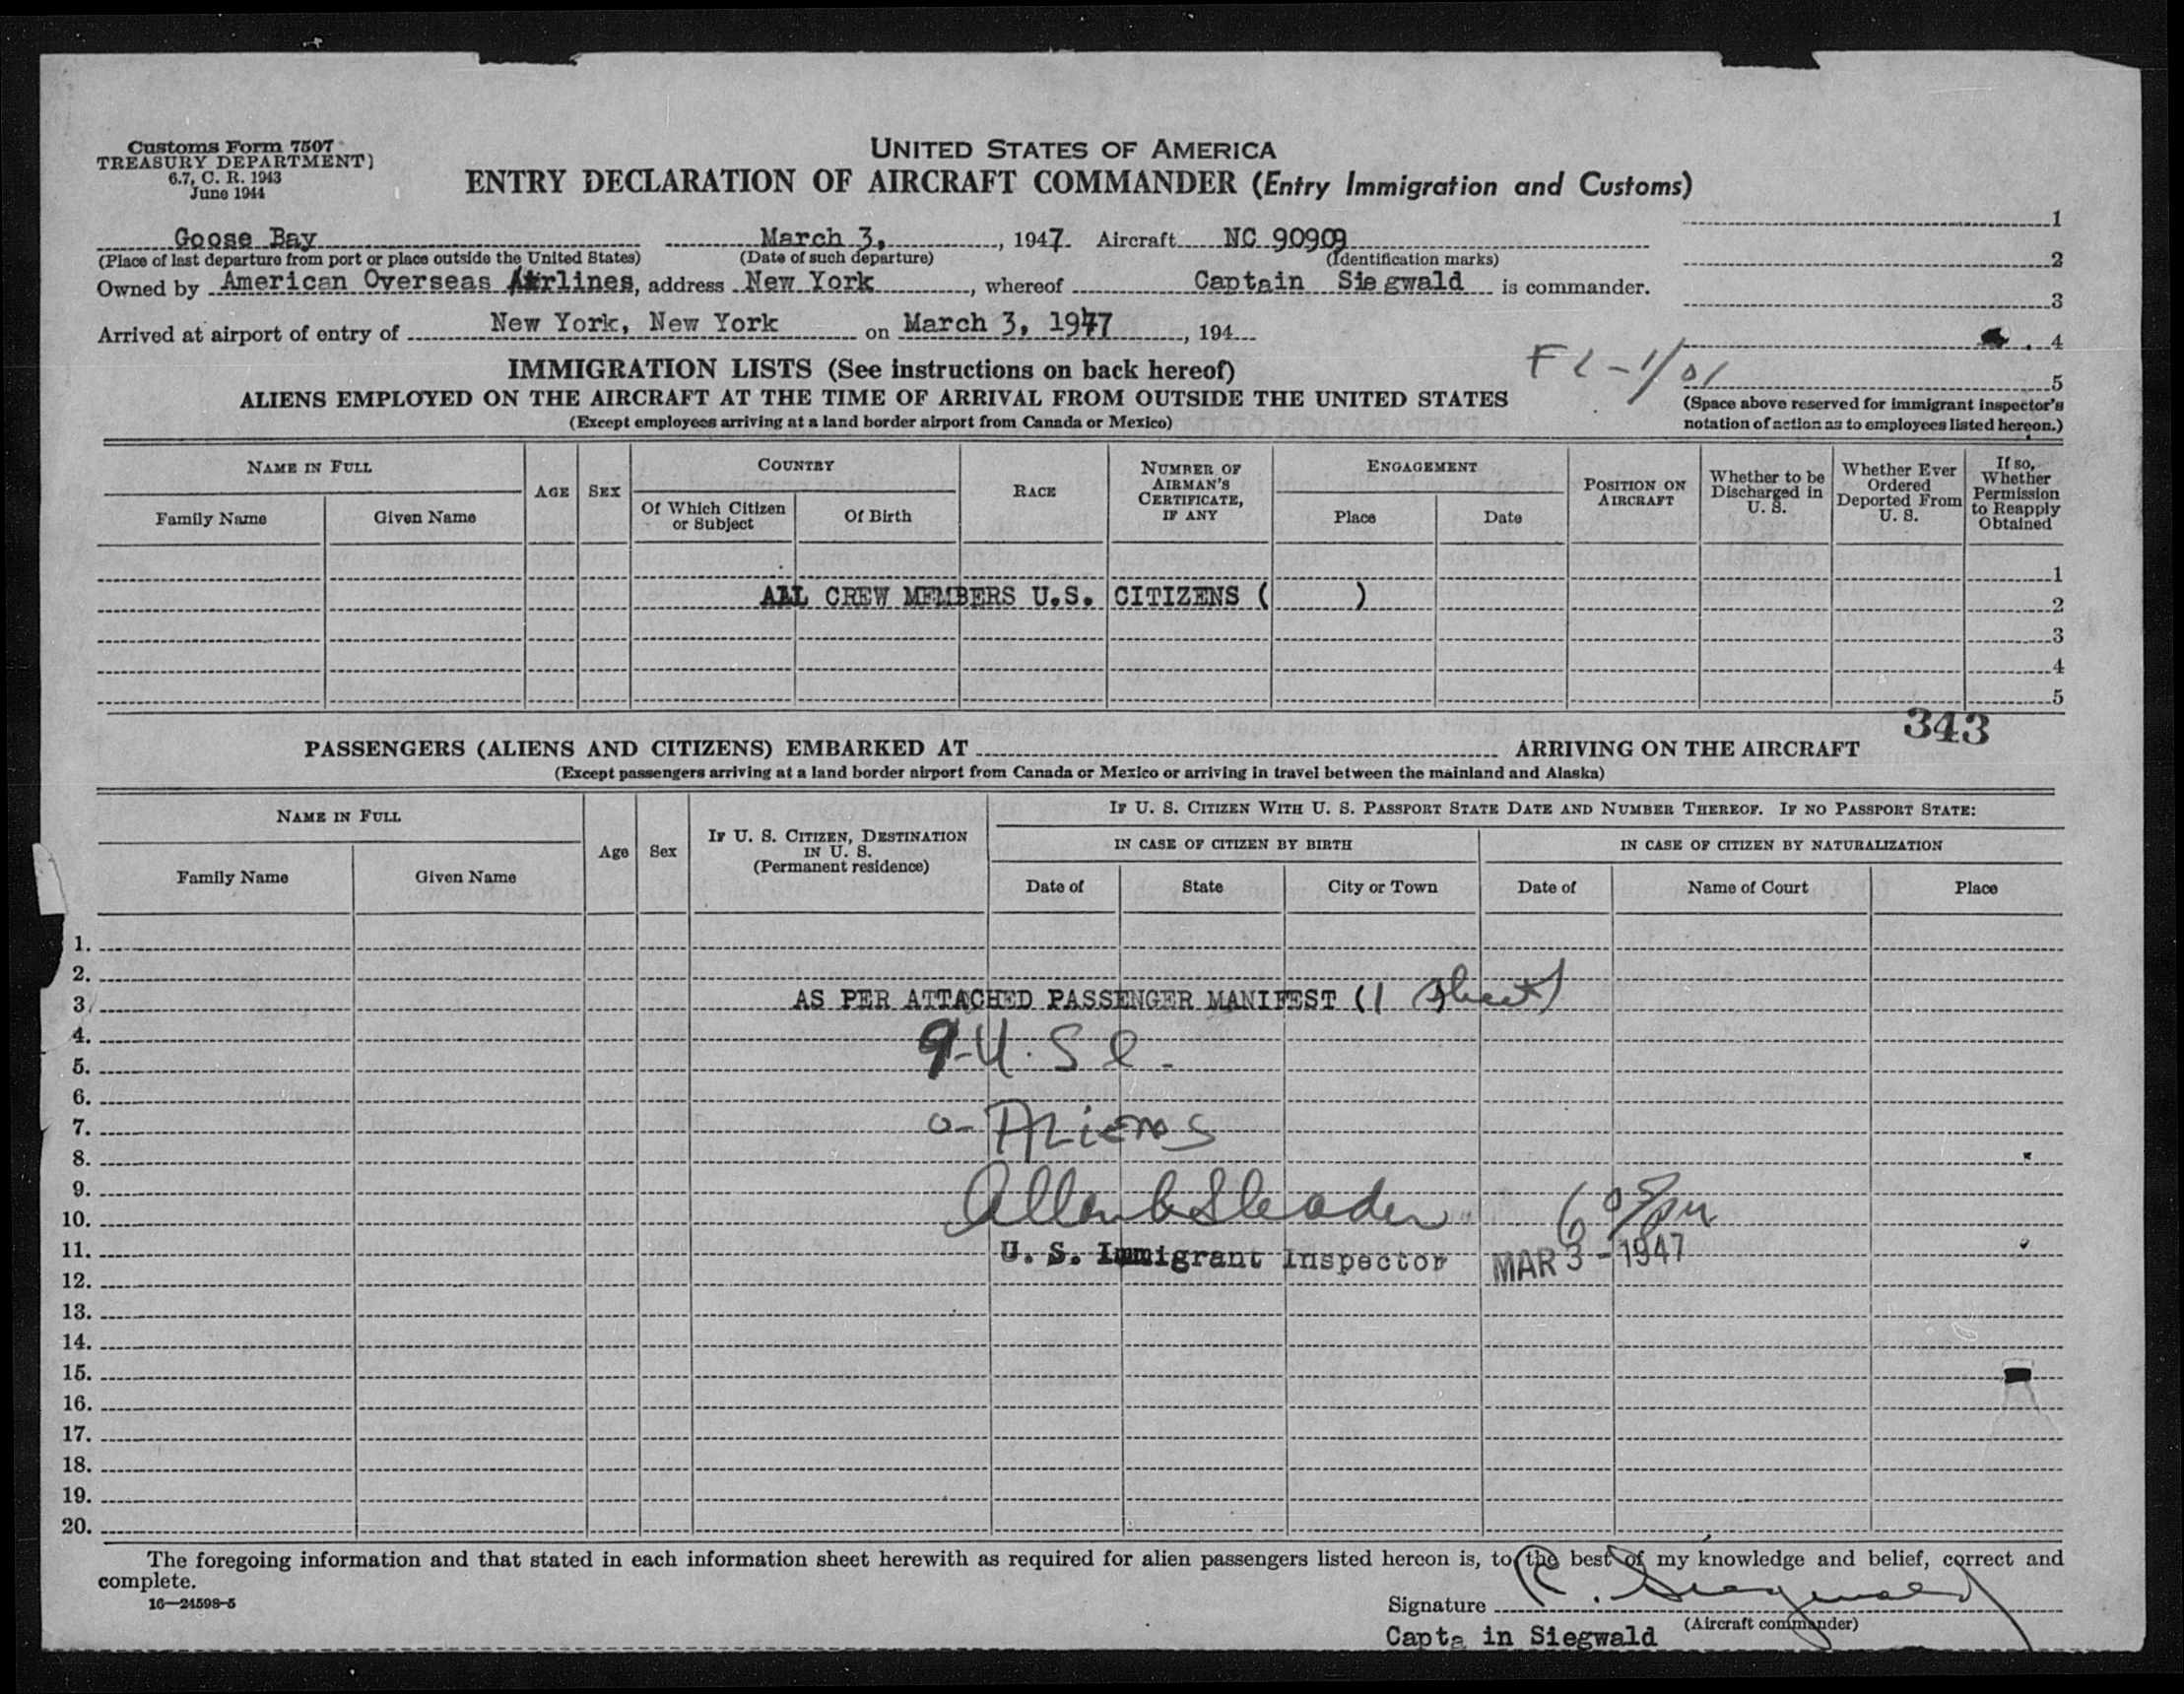 Customs Form 7507
TREASURY DEPARTMENT)
6.7, C. R. 1943
June 1944
UNITED STATES OF AMERICA
ENTRY DECLARATION OF AIRCRAFT COMMANDER (Entry Immigration and Customs)
Goose Bay March 3, , 1947 Aircraft NC 90909
(Place of last departure from port or place outside the United States) (Date of such departure) (Identification marks)
Owned by American Overseas Airlines, address New York , whereof Captain Siegwald is commander.
Arrived at airport of entry of New York, New York on March 3, 1947 , 194
1
2
3
4
5
(Space above reserved for immigrant inspector's
notation of action as to employees listed hereon.)
IMMIGRATION LISTS (See instructions on back hereof)
ALIENS EMPLOYED ON THE AIRCRAFT AT THE TIME OF ARRIVAL FROM OUTSIDE THE UNITED STATES
(Except employees arriving at a land border airport from Canada or Mexico)
NAME IN FULL
Family Name Given Name
AGE SEX
COUNTRY
Of Which Citizen or Subject
Of Birth
RACE
NUMBER OF AIRMAN'S CERTIFICATE, IF ANY
ENGAGEMENT
Place Date
POSITION ON AIRCRAFT
Whether to be Discharged in U. S.
Whether Ever Ordered Deported From U. S.
If so, Whether Permission to Reapply Obtained
1
ALL CREW MEMBERS U.S. CITIZENS ( ) 2
3
4
5
343
PASSENGERS (ALIENS AND CITIZENS) EMBARKED AT ARRIVING ON THE AIRCRAFT
(Except passengers arriving at a land border airport from Canada or Mexico or arriving in travel between the mainland and Alaska)
NAME IN FULL
Family Name Given Name
Age Sex
IF U. S. CITIZEN, DESTINATION IN U. S.
(Permanent residence)
IF U. S. CITIZEN WITH U. S. PASSPORT STATE DATE AND NUMBER THEREOF. IF NO PASSPORT STATE:
IN CASE OF CITIZEN BY BIRTH IN CASE OF CITIZEN BY NATURALIZATION
Date of State City or Town Date of Name of Court Place
1.
2.
3. AS PER ATTACHED PASSENGER MANIFEST (1 sheet)
4. 9-U.S C.
5.
6.
7. 0- Aliens
8.
9.
10. 6 05 pm
11. U. S. Immigrant Inspector MAR 3 - 1947
12.
13.
14.
15.
16.
17.
18.
19.
20.
The foregoing information and that stated in each information sheet herewith as required for alien passengers listed hereon is, to the best of my knowledge and belief, correct and
complete.
16—24598-5
Signature C. Siegwald
(Aircraft commander)
Captain Siegwald